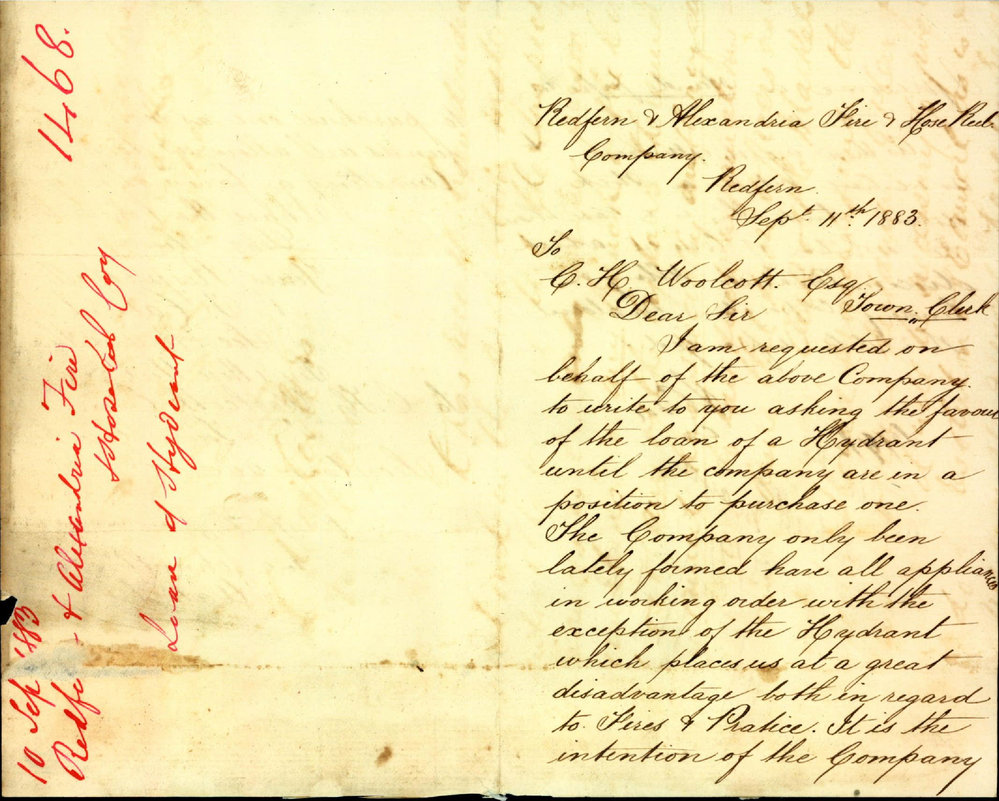 1468.
10 Sep '83
Redfe - & Alexandria Fire
& Hose Coy
Loan of Hydrant
Redfern & Alexandria Fire & Hose Reel
Company.
Redfern.
Sept. 11th 1883.
To
C. H. Woolcott. Esq.
Town Clerk
Dear Sir
I am requested on
behalf of the above Company.
to write to you asking the favour
of the loan of a Hydrant
until the company are in a
position to purchase one.
The Company only been
lately formed have all appliances
in working order with the
exception of the Hydrant
which places us at a great
disadvantage both in regard
to Fires & Pratice. It is the
intention of the Company